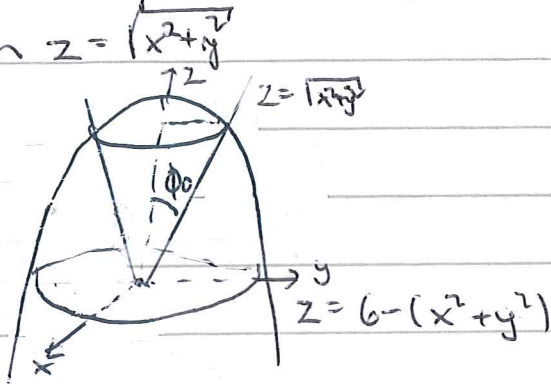 z = √x²+y²
z
z = √x²+y²
ϕ₀
y
z = 6-(x²+y²)
x